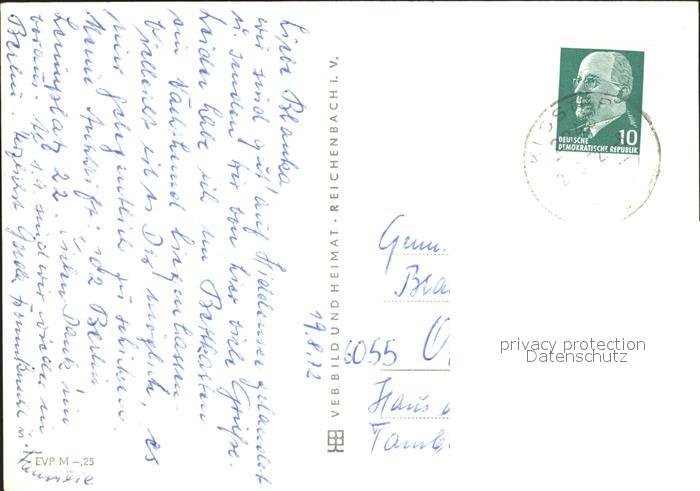 Liebe Blanka,
wir sind gut auf Hiddensee gelandet
u. senden Dir von hier viele Grüße.
Leider habe ich im Bettkasten
ein liegenlassen.
Vielleicht ist es Dir möglich, es
mir gelegentlich zu schicken.
Meine Anschrift: 102 Berlin
Leninplatz 22. Dank im
voraus. 1.9. sind wir wieder in
Berlin. Herzlichst Gerda
u. Familie
19.8.72
EVP M –,25
VEB BILD UND HEIMAT · REICHENBACH I. V.
10
DEUTSCHE
DEMOKRATISCHE REPUBLIK
Genn.
Bla
6055 O
Haus
Tamb
privacy protection
Datenschutz